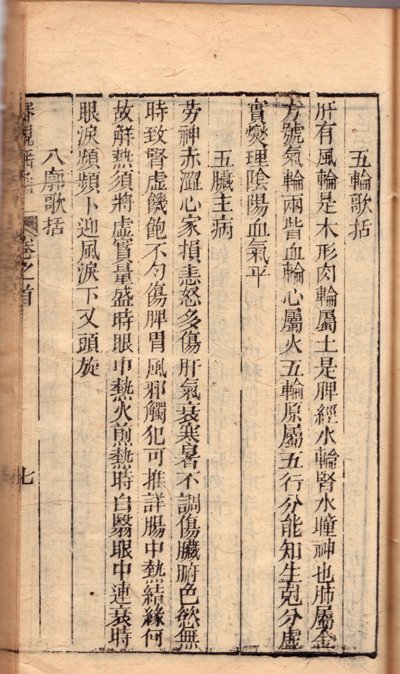 五輪歌括
肝有風輪是木形肉輪屬土是脾經水輪腎水瞳神也肺屬金
方號氣輪兩眥血輪心屬火五輪原屬五行分能知生剋分虛
實燮理陰陽血氣平
五臟主病
勞神赤澀心家損恚怒多傷肝氣衰寒暑不調傷臟腑色慾無
時致腎虛饑飽不勻傷脾胃風邪觸犯可推詳腸中熱結緣何
故解熱須將虛實量盛時眼中熱火煎熱時白翳眼中連衰時
眼淚頻頻卜迎風淚下又頭旋
八廓歌括
卷之首
七